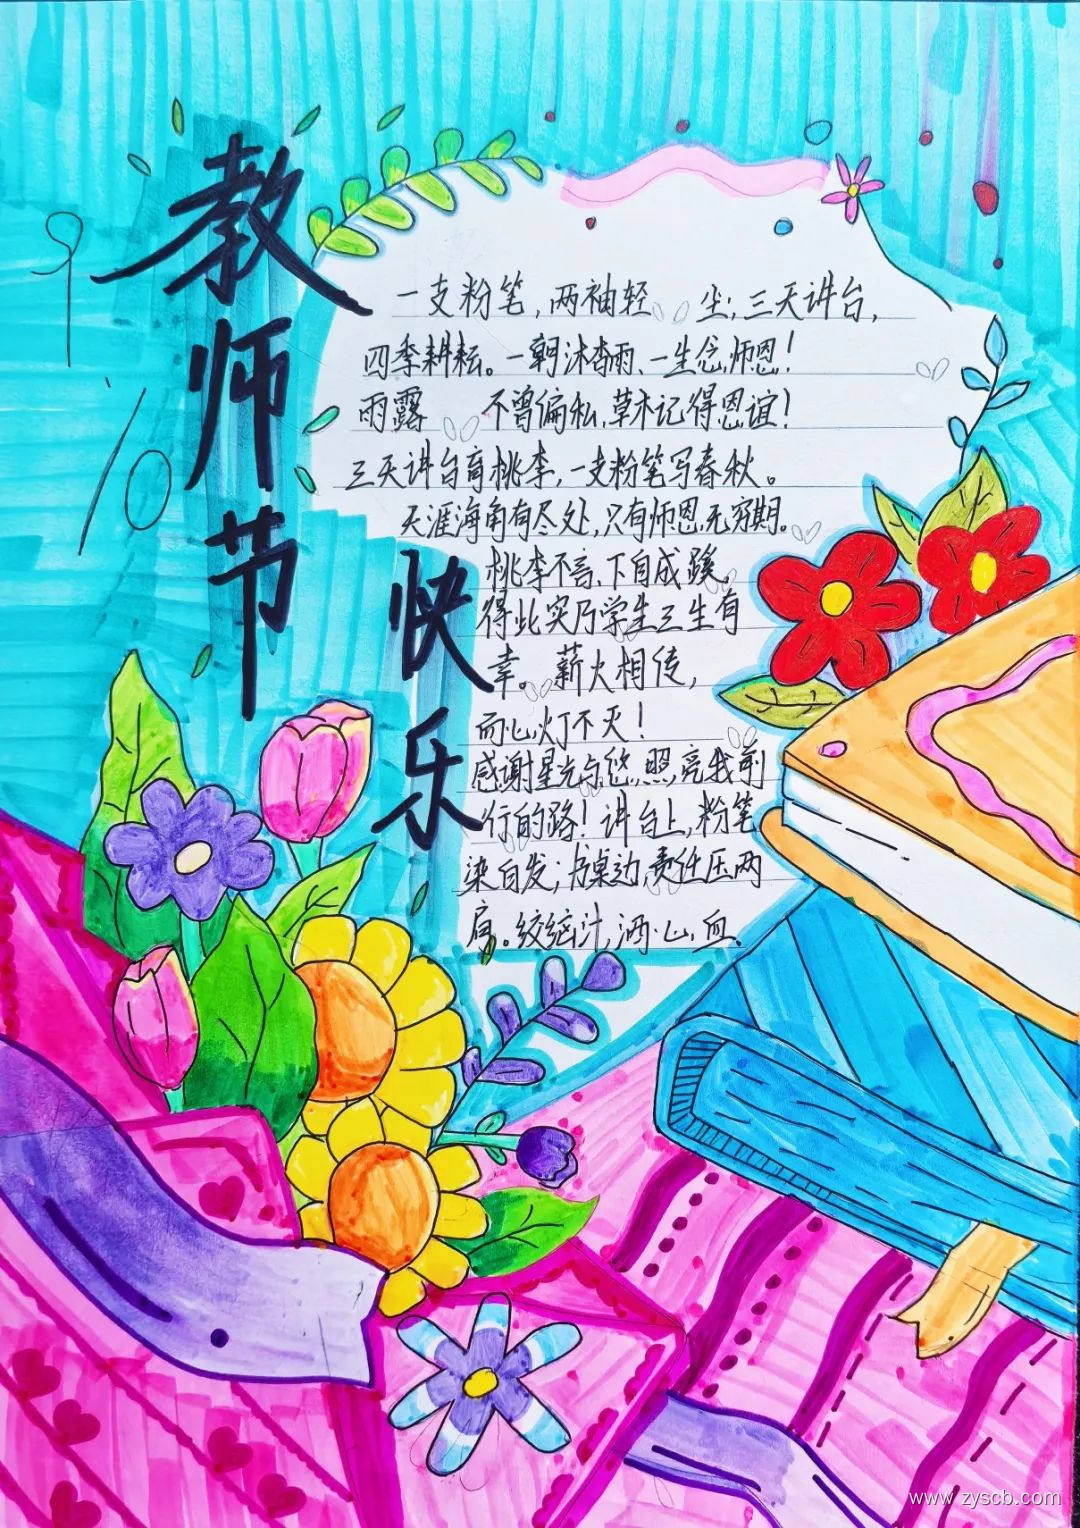 教师节
快乐
9/10
一支粉笔,两袖轻尘;三天讲台,
四季耕耘。一朝沐杏雨、一生念师恩!
雨露不曾偏私,草木记得恩谊!
三天讲台育桃李,一支粉笔写春秋。
天涯海角有尽处,只有师恩无穷期。
桃李不言、下自成蹊。
得此实乃学生三生有
幸。薪火相传,
而心灯不灭!
感谢星光与您,照亮我前
行的路!讲台上,粉笔
染白发;书桌边,责任压两
肩。绞脑汁,洒心血、
www.zyscb.com